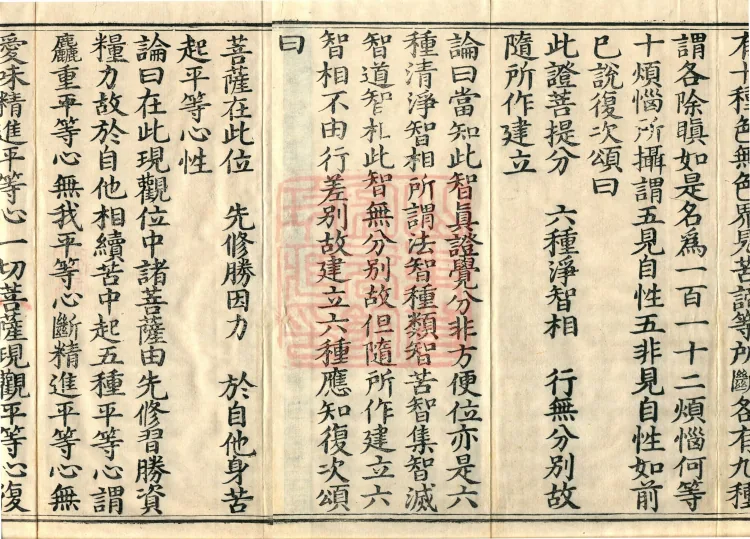 有十種色無色界見苦諦等所斷各有九種
謂各除瞋如是名為一百一十二煩惱何等
十煩惱所攝謂五見自性五非見自性如前
已說復次頌曰
此證菩提分　六種淨智相　行無分別故
隨所作建立
論曰當知此智真證覺分非方便位亦是六
種清淨智相所謂法智種類智苦智集智滅
智道智札此智無分別故但隨所作建立六
智相不由行差別故建立六種應知復次頌
曰
菩薩在此位　先修勝因力　於自他身苦
起平等心性
論曰在此現觀位中諸菩薩由先修習勝資
糧力故於自他相續苦中起五種平等心謂
麤重平等心無我平等心斷精進平等心無
愛味精進平等心一切菩薩現觀平等心復